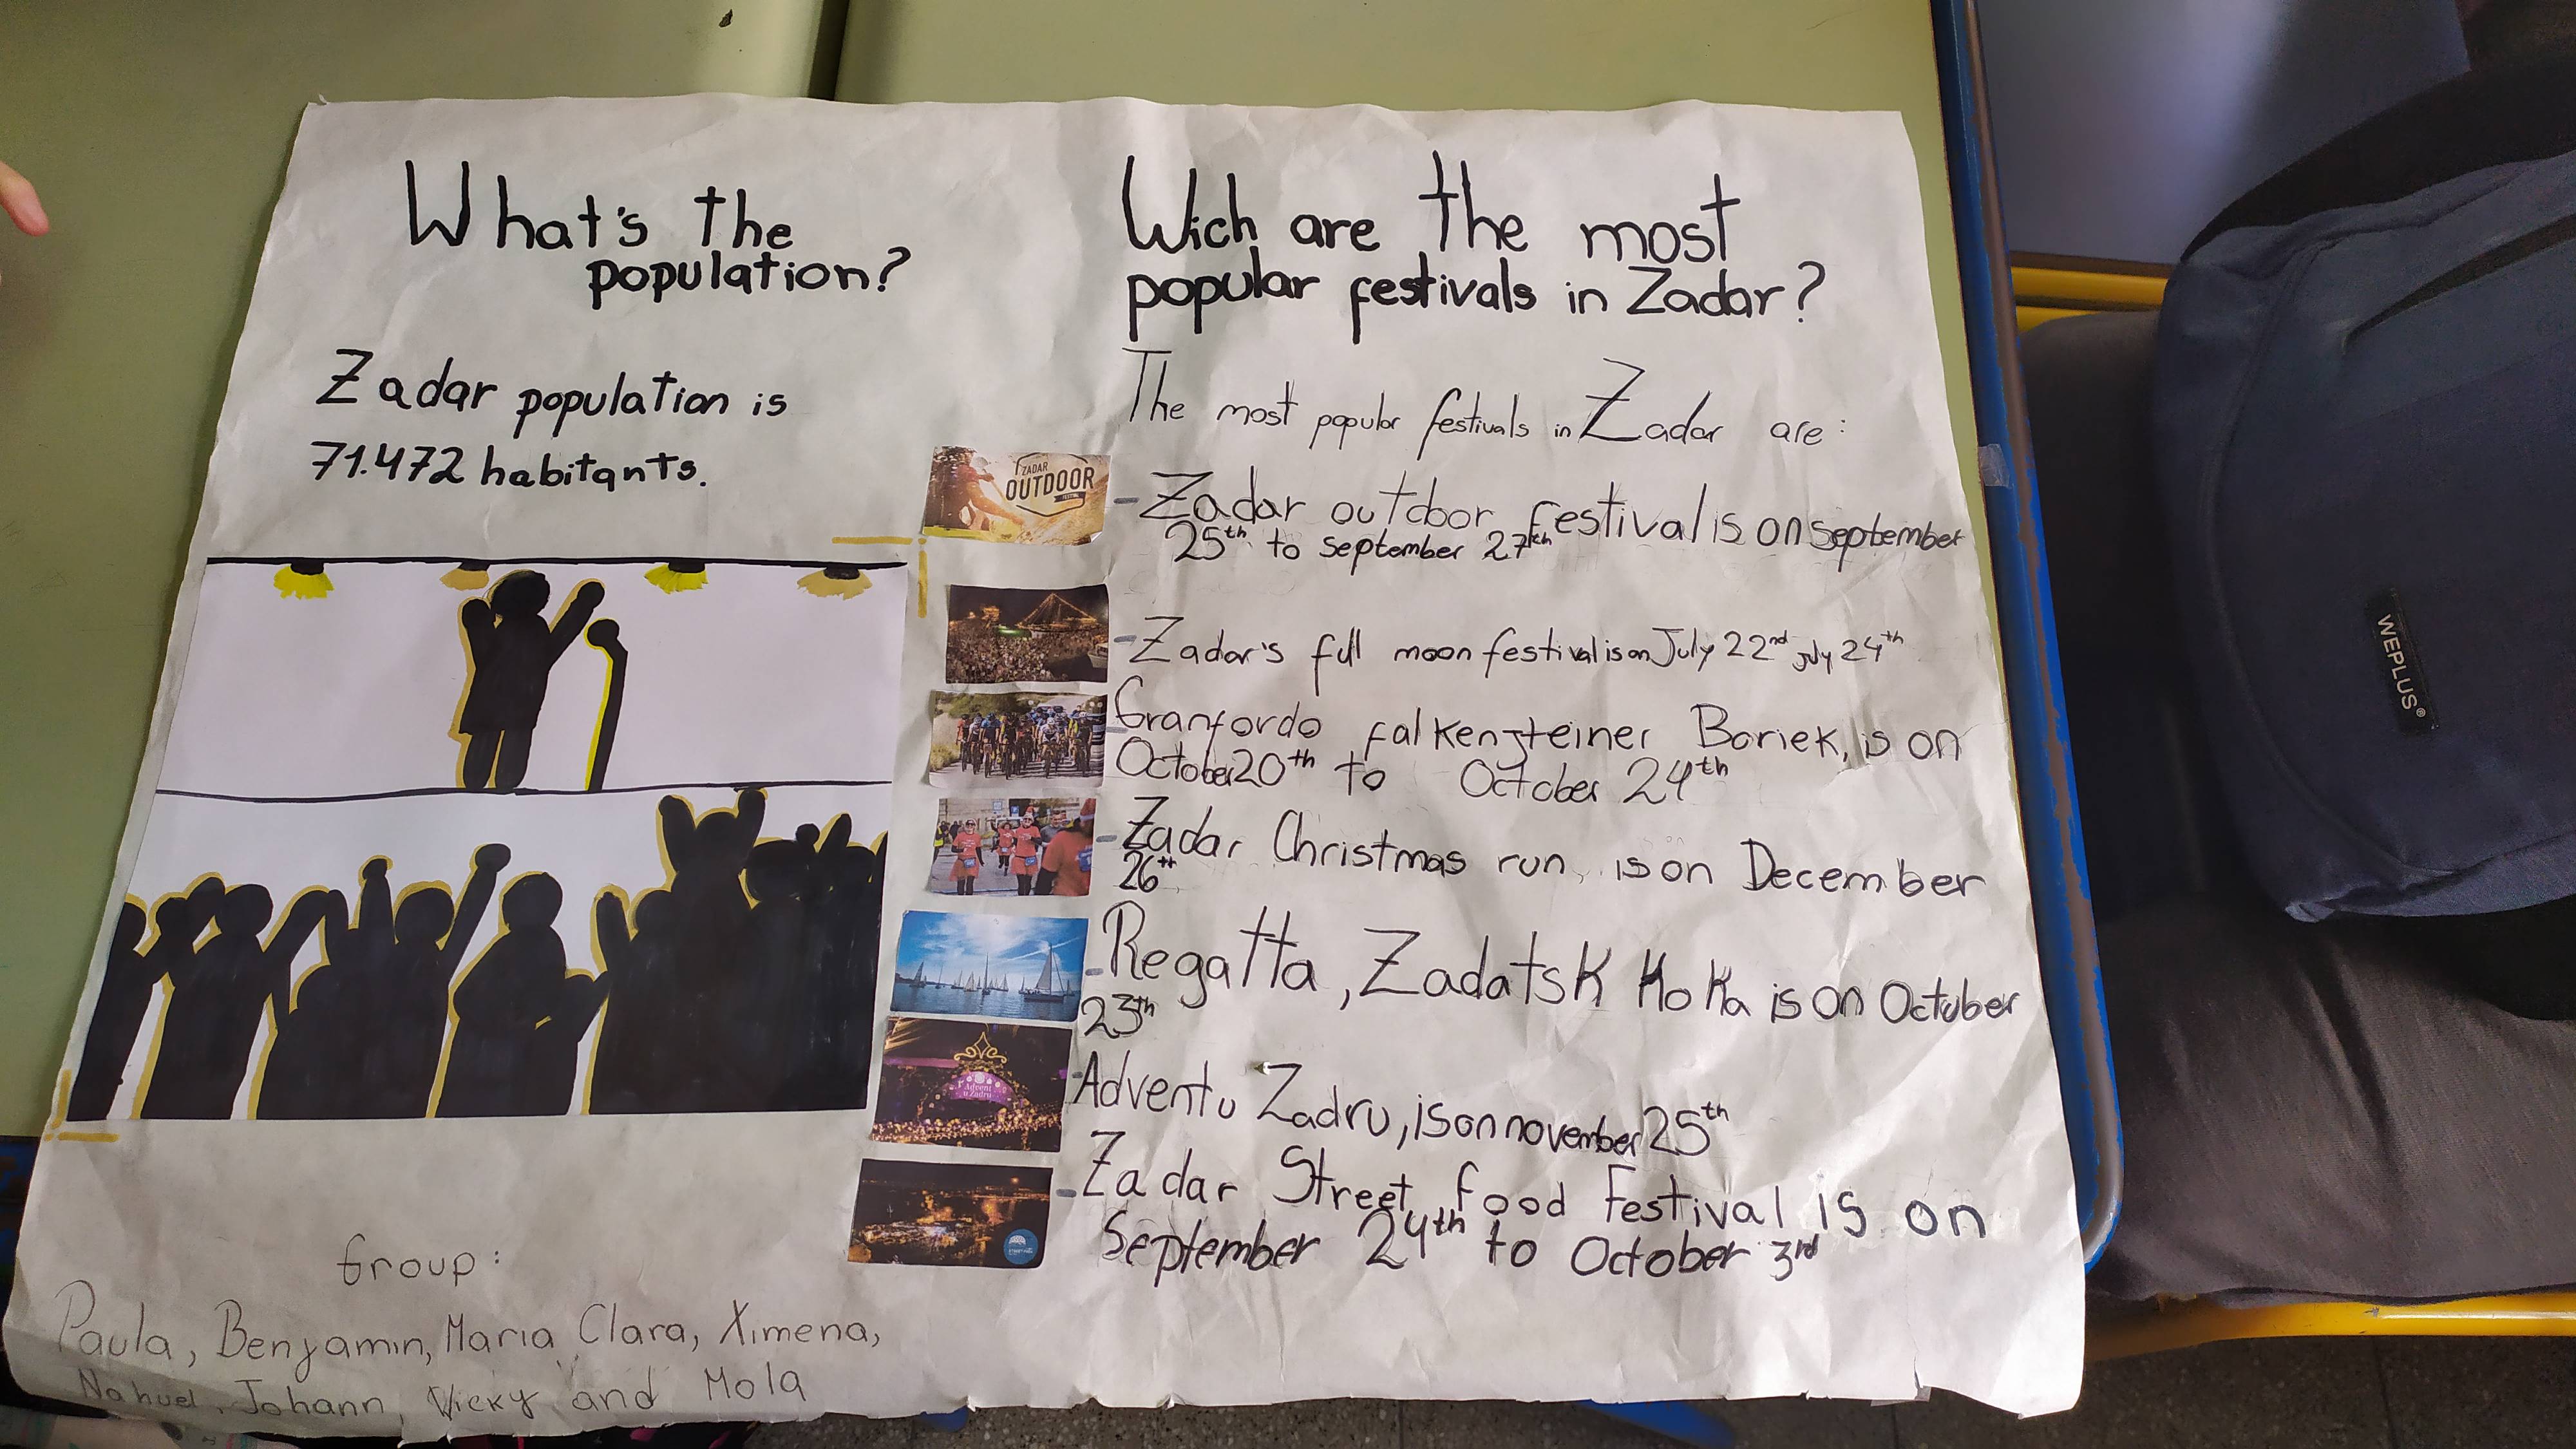 What's the
population?
Zadar population is
71.472 habitants.
Group:
Paula, Benjamin, Maria Clara, Ximena,
Nahuel, Johann, Vicky and Mola
Wich are the most
popular festivals in Zadar?
The most popular festivals in Zadar are:
ZADAR
OUTDOOR
FESTIVAL
- Zadar outdoor festival is on september
25th to september 27th
- Zadar's full moon festival is on July 22nd july 24th
- Granfordo falkensteiner Boriek, is on
October 20th to October 24th
- Zadar Christmas run, is on December
26th
- Regatta, Zadatsk Koka is on Octuber
23th
Advent
u Zadru
- Adventu Zadru, is on november 25th
- Zadar Street food festival is on
September 24th to October 3rd
WEPLUS®